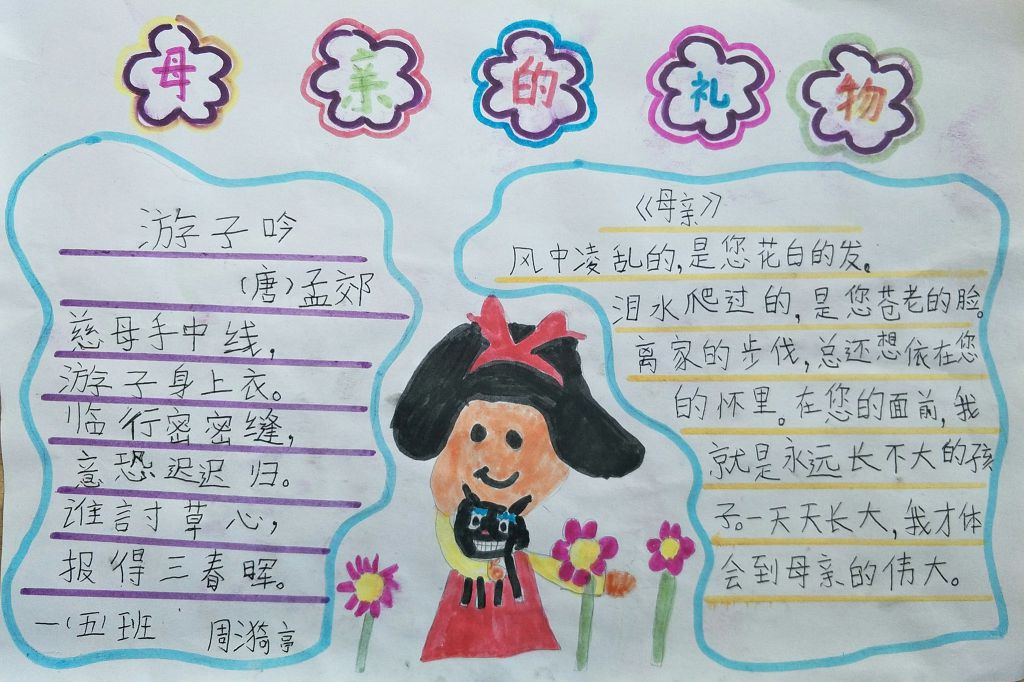 母亲的礼物
游子吟
(唐)孟郊
慈母手中线,
游子身上衣。
临行密密缝,
意恐迟迟归。
谁討草心,
报得三春晖。
一(五)班 周漪亭
《母亲》
风中凌乱的,是您花白的发。
泪水爬过的,是您苍老的脸。
离家的步伐,总还想依在您
的怀里。在您的面前,我
就是永远长不大的孩
子。一天天长大,我才体
会到母亲的伟大。